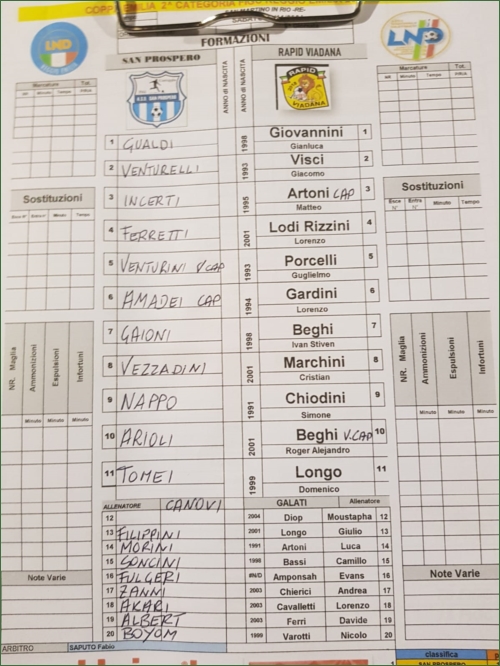 COPP EMILIA 2ª CATEGORIA FIGC REGGIO
SAN MARTINO IN RIO -RE-
FORMAZIONI
LND
LND
SAN PROSPERO
ANNO di NASCITA
ANNO di NASCITA
RAPID VIADANA
RAPID
VIADANA
Marcature Tot.
Min. Minuto Tempo
Marcature Tot.
Minuto Tempo
1 GUALDI 1998 Giovannini 1
Gianluca
2 VENTURELLI 1993 Visci 2
Giacomo
3 INCERTI 1995 Artoni CAP 3
Matteo
4 FERRETTI 2001 Lodi Rizzini 4
Lorenzo
5 VENTURINI V.CAP 1993 Porcelli 5
Guglielmo
6 AMADEI CAP 1994 Gardini 6
Lorenzo
7 GAIONI 1998 Beghi 7
Ivan Stiven
8 VEZZADINI 2001 Marchini 8
Cristian
9 NAPPO 1991 Chiodini 9
Simone
10 ARIOLI 2001 Beghi V.CAP 10
Roger Alejandro
11 TOMEI 1999 Longo 11
Domenico
ALLENATORE CANOVI GALATI Allenatore
12 2004 Diop Moustapha 12
13 FILIPPINI 2001 Longo Giulio 13
14 MORINI 1991 Artoni Luca 14
15 SONCINI 1998 Bassi Camillo 15
16 FULGERI #N/D Amponsah Evans 16
17 ZANNI 2003 Chierici Andrea 17
18 AKARI 2003 Cavalletti Lorenzo 18
19 ALBERT 2003 Ferri Davide 19
20 BOYOM 1999 Varotti Nicolo 20
Sostituzioni
Esce N° Entra n° Minuto Tempo
Sostituzioni
Esce N° Entra N° Minuto Tempo
NR. Maglia Ammonizioni Espulsioni Infortuni
Minuto Minuto Minuto
NR. Maglia Ammonizioni Espulsioni Infortuni
Minuto Minuto Minuto
Note Varie
Note Varie
ARBITRO SAPUTO Fabio
classifica
SAN PROSPERO